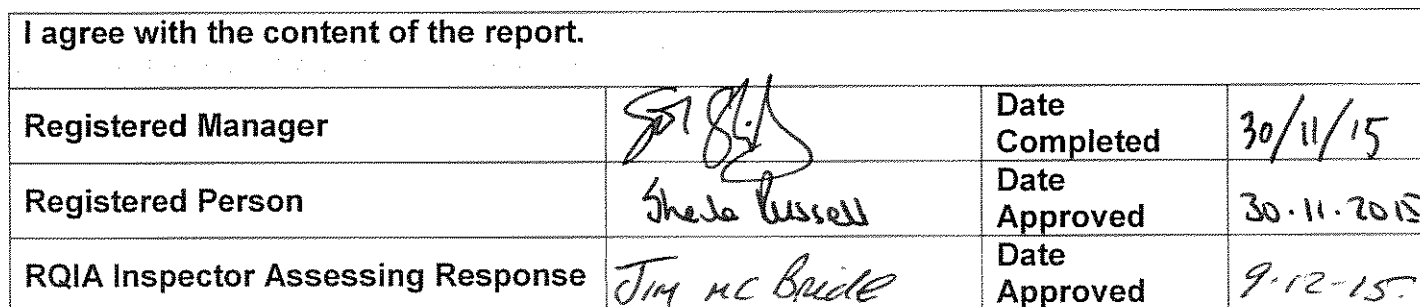 I agree with the content of the report.
Registered Manager Date Completed 30/11/15
Registered Person Sheila Russell Date Approved 30.11.2015
RQIA Inspector Assessing Response Jim Mc Bride Date Approved 9-12-15.